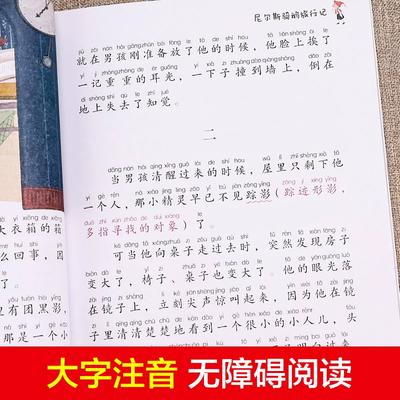 尼尔斯骑鹅旅行记
jiù zài nán hái gāng zhǔn bèi fàng le tā de shí hou tā liǎn shàng ái le
就在男孩刚准备放了他的时候，他脸上挨了
yí jì zhòng zhòng de ěr guāng yí xià zi zhuàng dào qiáng shàng dǎo zài
一记重重的耳光，一下子撞到墙上，倒在
dì shàng shī qù le zhī jué
地上失去了知觉。
二
dāng nán hái qīng xǐng guò lái de shí hou wū lǐ zhǐ shèng xià tā
当男孩清醒过来的时候，屋里只剩下他
yí gè rén nà xiǎo jīng líng zǎo yǐ bú jiàn zōng yǐng zōng jì xíng yǐng
一个人，那小精灵早已不见踪影（踪迹形影，
duō zhǐ xún zhǎo de duì xiàng le
多指寻找的对象）了。
kě dāng tā xiàng zhuō zi zǒu guò qù shí tū rán fā xiàn fáng zi
可当他向桌子走过去时，突然发现房子
biàn dà le yǐ zi zhuō zi yě biàn dà le tā de yǎn guāng luò
变大了，椅子、桌子也变大了。他的眼光落
zài jìng zi shàng lì kè jiān shēng jīng jiào qǐ lái yīn wèi zài jìng
在镜子上，立刻尖声惊叫起来，因为在镜
zi lǐ qīng qīng chǔ chǔ de kàn dào yí gè hěn xiǎo de xiǎo rén ér tóu
子里清清楚楚地看到一个很小的小人儿，头
大衣箱的箱
么回事，因
了。
有团黑影，
大字注音 无障碍阅读